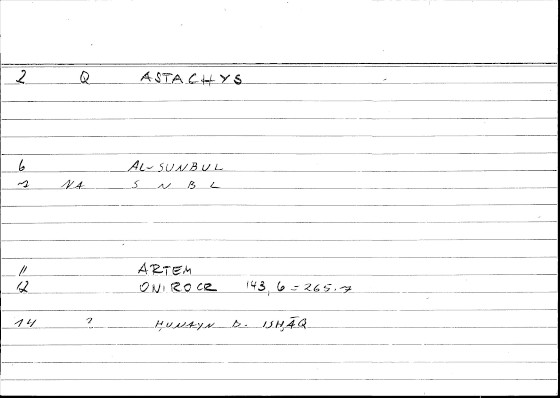 2 Q ASTACHYS
6 AL-SUNBUL
7 NA S N B L
11 ARTEM
12 ONIROCR 143, 6 = 265.7
14 ? ḤUNAYN B. ISḤĀQ